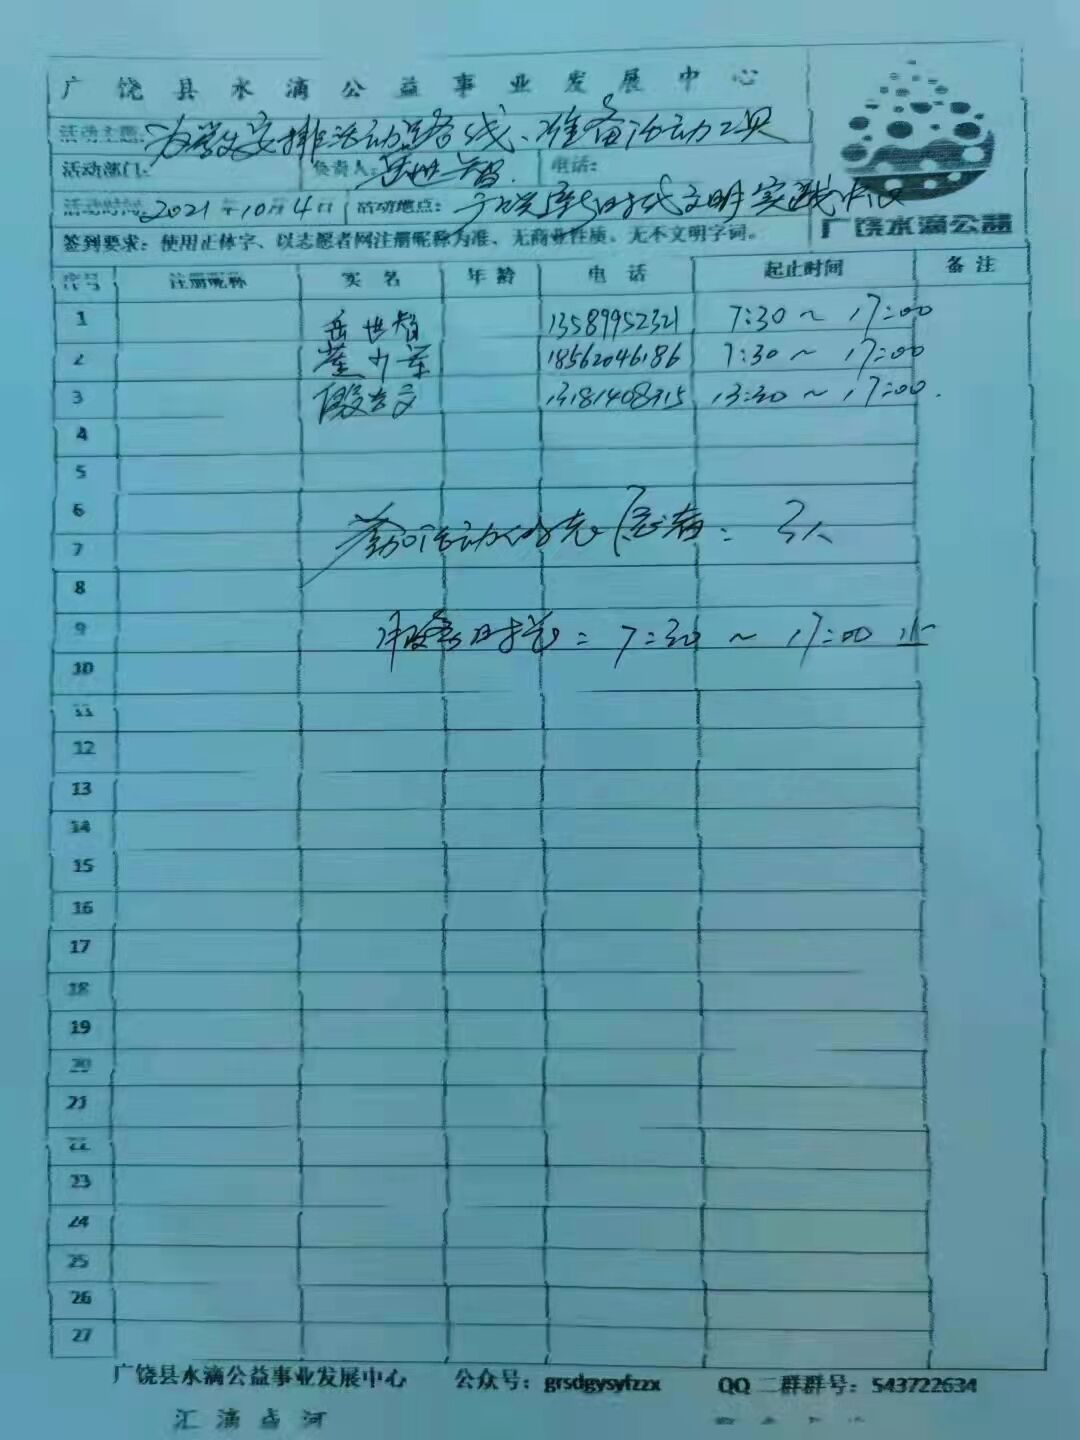 广饶县水滴公益事业发展中心
活动主题:为学生安排活动路线、准备活动工具
活动部门: 负责人:岳世智. 电话:
活动时间:2021年10月4日 活动地点:广饶县新时代文明实践中心
广饶水滴公益
签到要求：使用正体字、以志愿者网注册昵称为准、无商业性质、无不文明字词。
序号 注册昵称 实名 年龄 电话 起止时间 备注
1 岳世智 13589952321 7:30～17:00
2 18562046186 7:30～17:00
3 13181408315 13:30～17:00.
4
5
6
参加活动的志愿者: 3人
7
8
9 服务时间: 7:30～17:00
10
11
12
13
14
15
16
17
18
19
20
21
22
23
24
25
26
27
广饶县水滴公益事业发展中心 公众号：grsdgysyfzzx QQ二群群号：543722634
汇滴成河